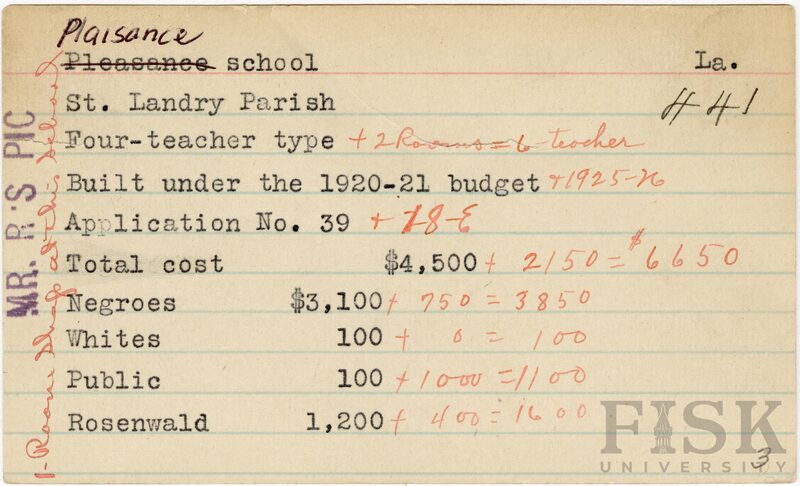 Plaisance
Pleasance school La.
St. Landry Parish 441
Four-teacher type + 2 Rooms = 6-teacher
Built under the 1920-21 budget + 1925-26
Application No. 39 + 18-E
Total cost $4,500 + 2150 = $6650
Negroes $3,100 + 750 = 3850
Whites 100 + 0 = 100
Public 100 + 1000 = 1100
Rosenwald 1,200 + 400 = 1600
3
MR. R'S PIC
1-Room Shop at this School
FISK
UNIVERSITY